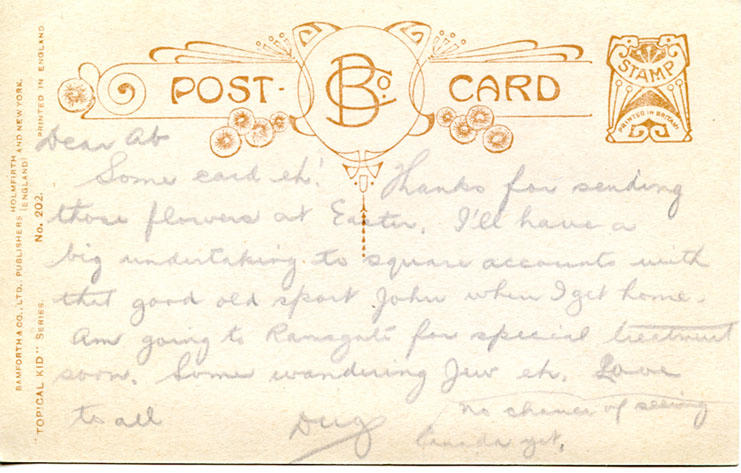 POST-
BCo.
CARD
STAMP
PRINTED IN BRITAIN
BAMFORTH & CO., LTD., PUBLISHERS HOLMFIRTH (ENGLAND) AND NEW YORK.
"TOPICAL KID" SERIES. No. 202. PRINTED IN ENGLAND
Dear Ab
Some card eh! Thanks for sending
those flowers at Easter. I'll have a
big undertaking to square accounts with
that good old sport John when I get home.
Am going to Ramsgate for special treatment
soon. Some wandering Jew eh. Love
to all
Dug
no chance of seeing
Canada yet.